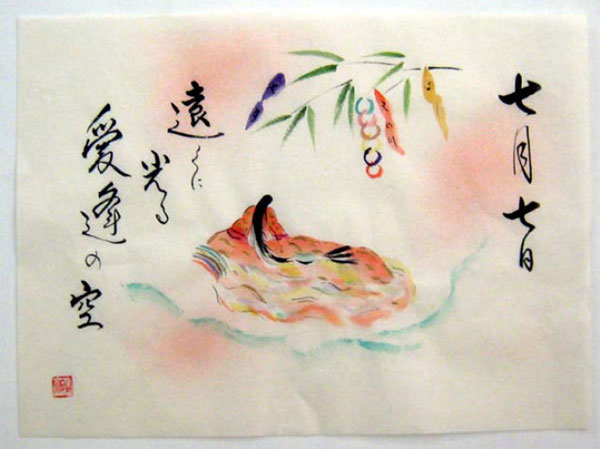 七月七日
遠くに
光る
愛逢の空